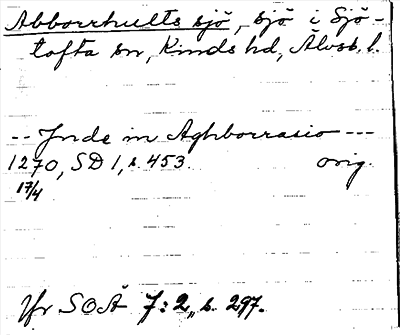 Abborrhults sjö, sjö i Sjö-
tofta sn, Kinds hd, Älvsb. l.
-- Inde in Aghborrasio ---
1270, SD 1, s. 453. orig.
17/4
Jfr SOÄ 7:2, s. 297.